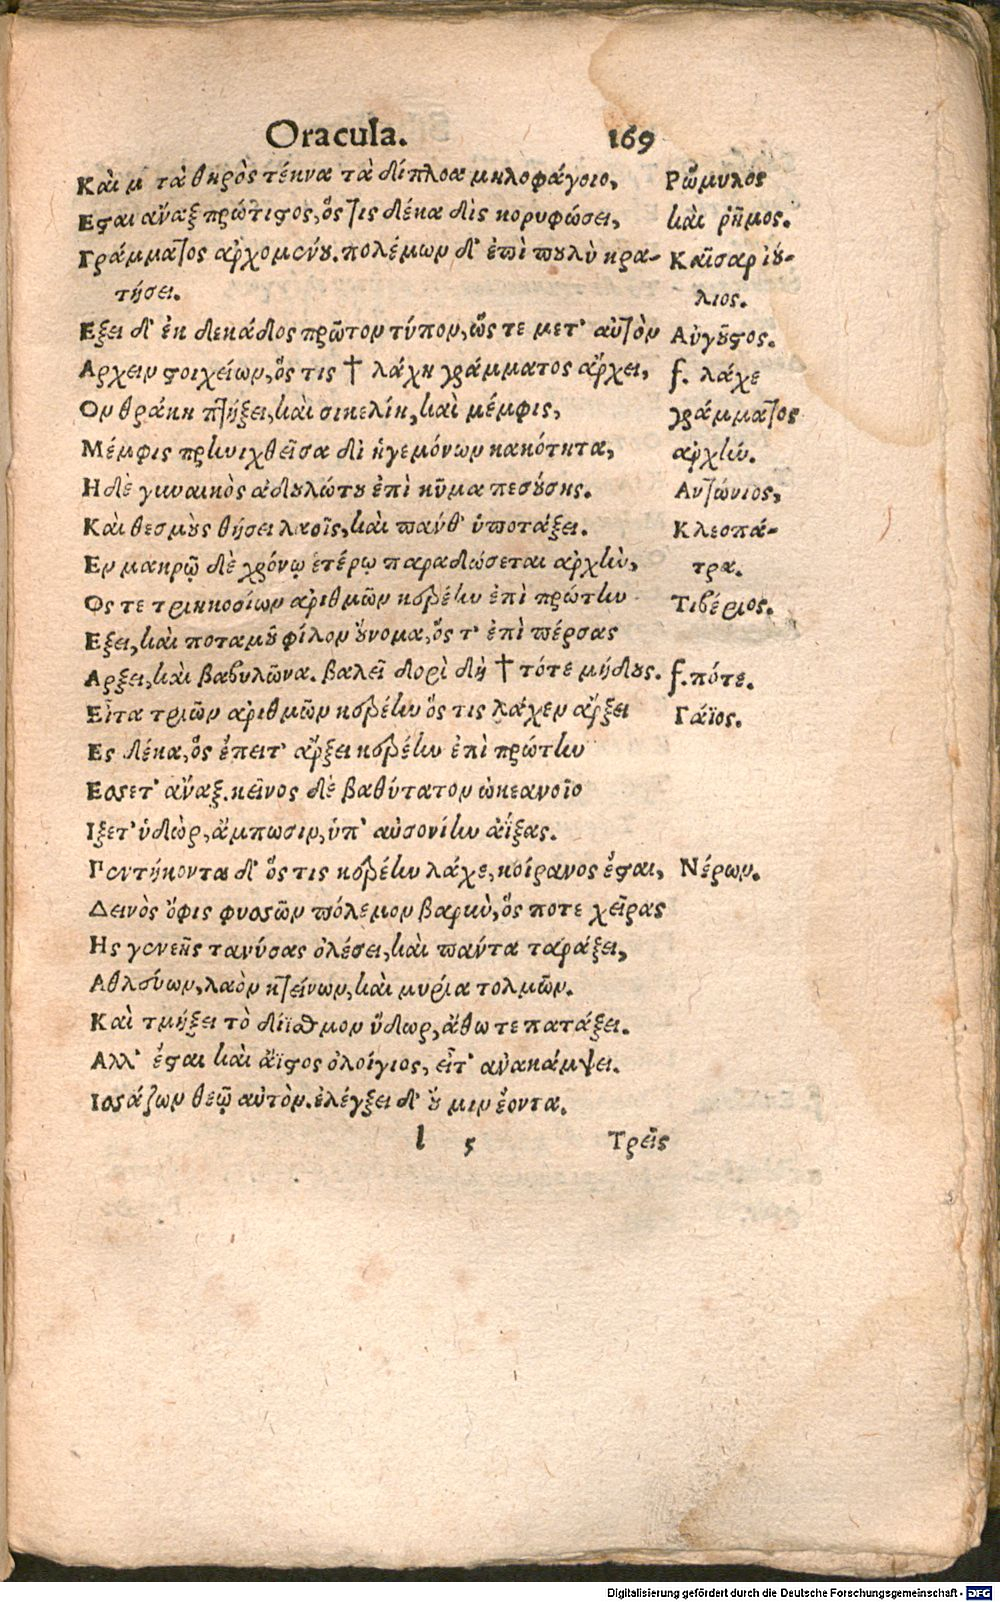 Oracula. 169
Καὶ μ τὰ θηρὸς τέκνα τὰ δίπλοα μηλοφάγοιο, Ρώμυλος
Εσται ἄναξ πρώτιστος, ὅς τις δέκα δὶς κορυφώσει, καὶ ῥῆμος.
Γράμματος ἀρχομένου. πολέμων δ' ἐπὶ πουλὺ κρα- Καῖσαρ ἰού-
τήσει. λιος.
Εξει δ' ἐκ δεκάδος πρῶτον τύπον, ὥς τε μετ' αὐτὸν Αὐγοῦστος.
Αρχειν στοιχείων, ὅς τις † λάχη γράμματος ἄρχει, f. λάχε
Ον θράκη πτήξει, καὶ σικελίη, καὶ μέμφις, γράμματος
Μέμφις πρηνιχθεῖσα δι ἡγεμόνων κακότητα, ἀρχήν.
Η δὲ γυναικὸς ἀδουλώτου ἐπὶ κῦμα πεσούσης. Αντώνιος,
Καὶ θεσμοὺς θήσει λαοῖς, καὶ πανθ' ὑποτάξει. Κλεοπά-
Εν μακρῷ δὲ χρόνῳ ἑτέρῳ παραδώσεται ἀρχὴν, τρα.
Ος τε τριηκοσίων ἀριθμῶν κεραίην ἐπὶ πρώτην Τιβέριος.
Εξει, καὶ ποταμοῦ φίλον οὔνομα, ὅς τ' ἐπὶ πέρσας
Αρξει, καὶ βαβυλῶνα. βαλεῖ δορὶ δὴ † τότε μήδους. f. πότε.
Εἶτα τριῶν ἀριθμῶν κεραίην ὅς τις λάχεν ἄρξει Γάϊος.
Ες δέκα, ὅς ἔπειτ' ἄρξει κεραίην ἐπὶ πρώτην
Εσσετ' ἄναξ. κεῖνος δὲ βαθύτατον ὠκεανοῖο
Ιξετ' ὑδὼρ, ἄμπωσιν, ὑπ' αὐσονίην ἀΐξας.
Πεντήκοντα δ' ὅς τις κεραίην λάχε, κοίρανος ἔσται, Νέρων.
Δεινὸς ὄφις φυσσῶν πόλεμον βαρὺν, ὅς ποτε χεῖρας
Ης γενεῆς τανύσας ὀλέσει, καὶ πάντα ταράξει,
Αθλεύων, λαὸν κτείνων, καὶ μυρία τολμῶν.
Καὶ τμήξει τὸ δίϊσθμον ὕδωρ, ἄθω τε πατάξει.
Αλλ' ἔσται καὶ ἄϊστος ὀλοίγιος, εἶτ' ἀνακάμψει.
Ισάζων θεῷ αὐτὸν. ἐλέγξει δ' οὔ μιν ἐόντα.
l 5 Τρεῖς
Digitalisierung gefördert durch die Deutsche Forschungsgemeinschaft - DFG